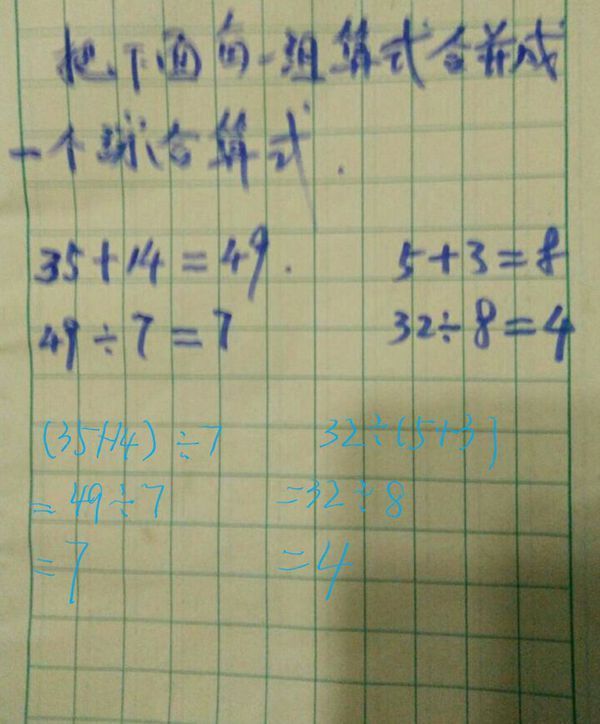 把下面每一组算式合并成
一个综合算式.
35+14=49. 5+3=8
49÷7=7 32÷8=4
(35+14)÷7 32÷(5+3)
=49÷7 =32÷8
=7 =4